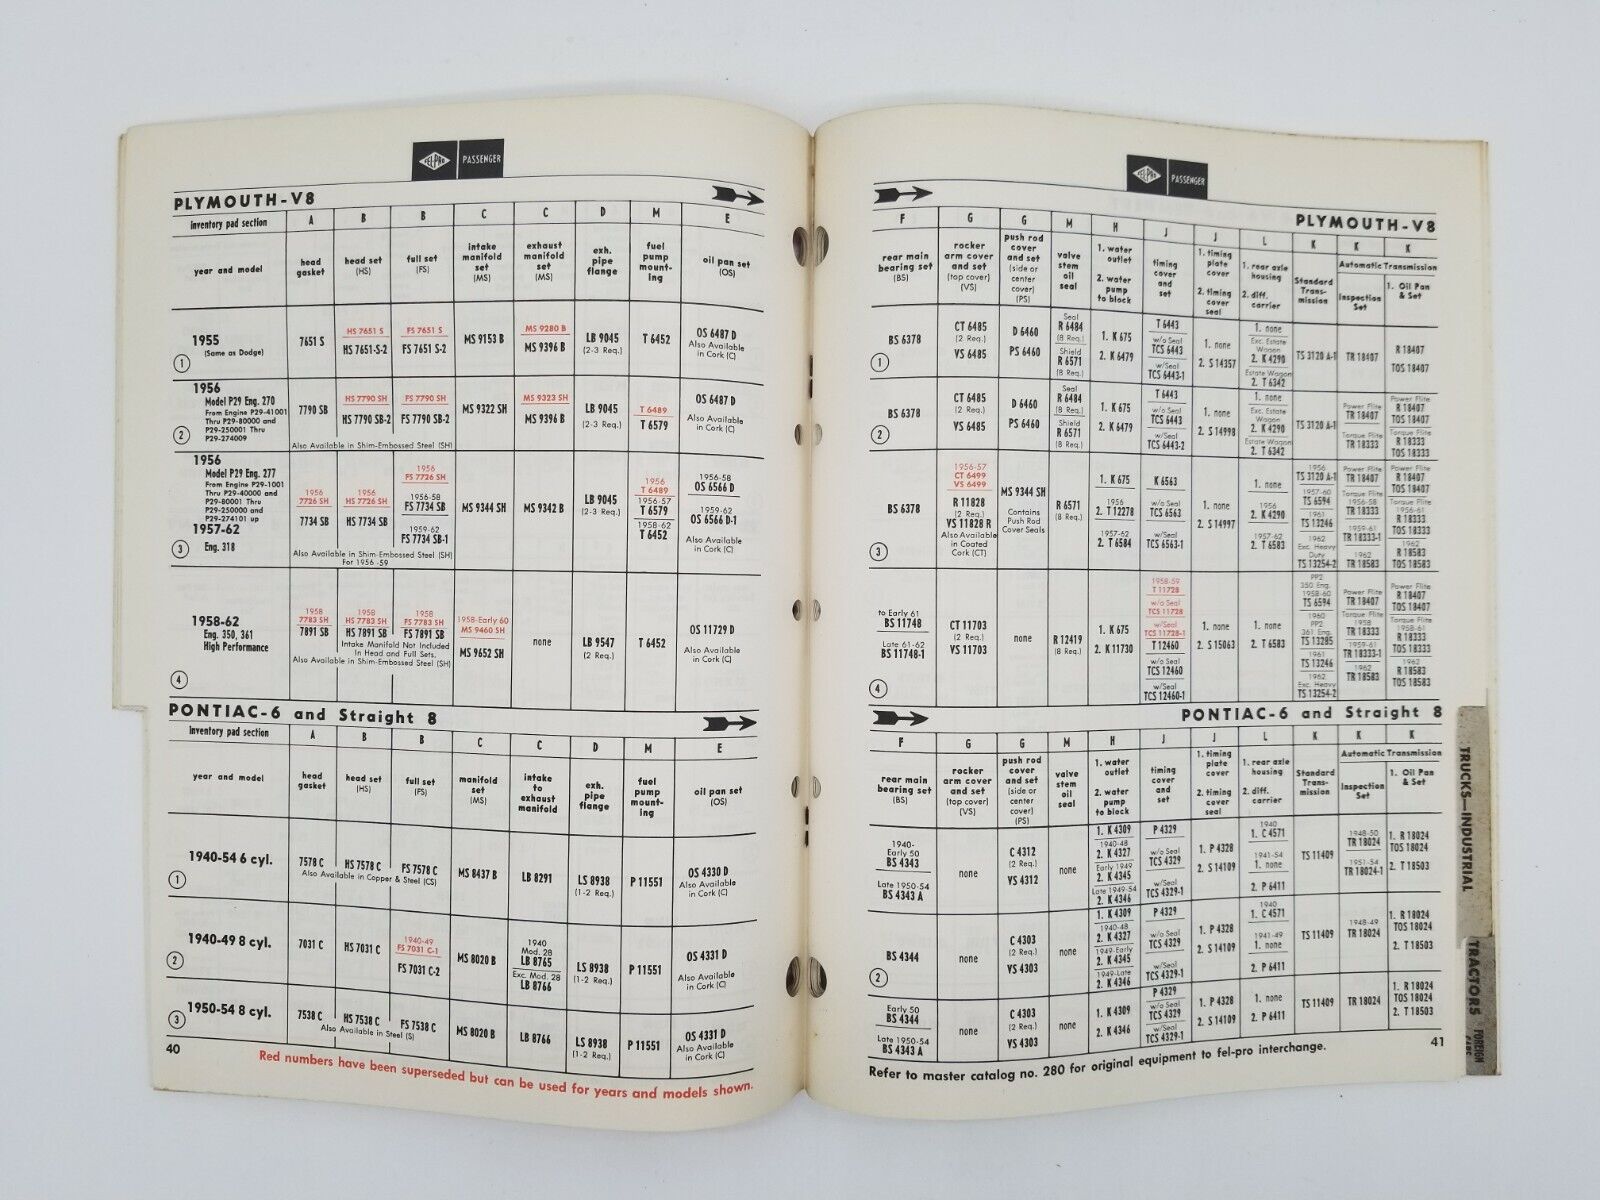 FEL-PRO PASSENGER
PLYMOUTH-V8
inventory pad section A B B C C D M E
year and model head gasket head set (HS) full set (FS) intake manifold set (MS) exhaust manifold set (MS) exh. pipe flange fuel pump mount-ing oil pan set (OS)
1955
(Same as Dodge)
1
7651 S
HS 7651 S
HS 7651-S-2
FS 7651 S
FS 7651 S-2
MS 9153 B
MS 9280 B
MS 9396 B
LB 9045
(2-3 Req.)
T 6452
OS 6487 D
Also Available
in Cork (C)
1956
Model P29 Eng. 270
From Engine P29-41001
Thru P29-80000 and
P29-250001 Thru
P29-274009
2
7790 SB
HS 7790 SH
HS 7790 SB-2
FS 7790 SH
FS 7790 SB-2
Also Available in Shim-Embossed Steel (SH)
MS 9322 SH
MS 9323 SH
MS 9396 B
LB 9045
(2-3 Req.)
T 6489
T 6579
OS 6487 D
Also Available
in Cork (C)
1956
Model P29 Eng. 277
From Engine P29-1001
Thru P29-40000 and
P29-80001 Thru
P29-250000 and
P29-274101 up
1957-62
Eng. 318
3
1956
7726 SH
7734 SB
1956
HS 7726 SH
HS 7734 SB
1956
FS 7726 SH
1956-58
FS 7734 SB
1959-62
FS 7734 SB-1
Also Available in Shim-Embossed Steel (SH)
For 1956-59
MS 9344 SH
MS 9342 B
LB 9045
(2-3 Req.)
1956
T 6489
1956-57
T 6579
1958-62
T 6452
1956-58
OS 6566 D
1959-62
OS 6566 D-1
Also Available
in Cork (C)
1958-62
Eng. 350, 361
High Performance
4
1958
7783 SH
7891 SB
1958
HS 7783 SH
HS 7891 SB
1958
FS 7783 SH
FS 7891 SB
Intake Manifold Not Included
in Head and Full Sets.
Also Available in Shim-Embossed Steel (SH)
1958-Early 60
MS 9460 SH
MS 9652 SH
none
LB 9547
(2 Req.)
T 6452
OS 11729 D
Also Available
in Cork (C)
PONTIAC-6 and Straight 8
inventory pad section A B B C C D M E
year and model head gasket head set (HS) full set (FS) manifold set (MS) intake to exhaust manifold exh. pipe flange fuel pump mount-ing oil pan set (OS)
1940-54 6 cyl.
1
7578 C
HS 7578 C
FS 7578 C
Also Available in Copper & Steel (CS)
MS 8437 B
LB 8291
LS 8938
(1-2 Req.)
P 11551
OS 4330 D
Also Available
in Cork (C)
1940-49 8 cyl.
2
7031 C
HS 7031 C
1940-49
FS 7031 C-1
FS 7031 C-2
MS 8020 B
1940
Mod. 28
LB 8765
Exc. Mod. 28
LB 8766
LS 8938
(1-2 Req.)
P 11551
OS 4331 D
Also Available
in Cork (C)
1950-54 8 cyl.
3
7538 C
HS 7538 C
FS 7538 C
Also Available in Steel (S)
MS 8020 B
LB 8766
LS 8938
(1-2 Req.)
P 11551
OS 4331 D
Also Available
in Cork (C)
40
Red numbers have been superseded but can be used for years and models shown.
FEL-PRO PASSENGER
PLYMOUTH-V8
F G G M H J J L K K K
rear main bearing set (BS)
rocker arm cover and set (top cover) (VS)
push rod cover and set (side or center cover) (PS)
valve stem oil seal
1. water outlet
2. water pump to block
timing cover and set
1. timing plate cover
2. timing cover seal
1. rear axle housing
2. diff. carrier
Standard Trans-mission
Automatic Transmission
Inspection Set
1. Oil Pan & Set
1
BS 6378
CT 6485
(2 Req.)
VS 6485
D 6460
PS 6460
Seal
R 6484
(8 Req.)
Shield
R 6571
(8 Req.)
1. K 675
2. K 6479
T 6443
w/o Seal
TCS 6443
w/Seal
TCS 6443-1
1. none
2. S 14357
1. none
Exc. Estate
Wagon
2. K 4290
Estate Wagon
2. T 6342
TS 3120 A-1
TR 18407
R 18407
TOS 18407
2
BS 6378
CT 6485
(2 Req.)
VS 6485
D 6460
PS 6460
Seal
R 6484
(8 Req.)
Shield
R 6571
(8 Req.)
1. K 675
2. K 6479
T 6443
w/o Seal
TCS 6443
w/Seal
TCS 6443-2
1. none
2. S 14998
1. none
Exc. Estate
Wagon
2. K 4290
Estate Wagon
2. T 6342
TS 3120 A-1
Power Flite
TR 18407
Torque Flite
TR 18333
Power Flite
R 18407
TOS 18407
Torque Flite
R 18333
TOS 18333
3
BS 6378
1956-57
CT 6499
VS 6499
R 11828
(2 Req.)
VS 11828 R
Also Available
in Coated
Cork (CT)
MS 9344 SH
Contains
Push Rod
Cover Seals
R 6571
(8 Req.)
1. K 675
1956
2. T 12278
1957-62
2. T 6584
K 6563
w/o Seal
TCS 6563
w/Seal
TCS 6563-1
1. none
2. S 14997
1. none
1956
2. K 4290
1957-62
2. T 6583
1956
TS 3120 A-1
1957-60
TS 6594
1961
TS 13246
1962
Exc. Heavy
Duty
TS 13254-2
Power Flite
TR 18407
Torque Flite
1956-58
TR 18333
1959-61
TR 18333-1
1962
TR 18583
Power Flite
R 18407
TOS 18407
Torque Flite
1956-61
R 18333
TOS 18333
1962
R 18583
TOS 18583
4
to Early 61
BS 11748
Late 61-62
BS 11748-1
CT 11703
(2 Req.)
VS 11703
none
R 12419
(8 Req.)
1. K 675
2. K 11730
1958-59
T 11728
w/o Seal
TCS 11728
w/Seal
TCS 11728-1
T 12460
w/o Seal
TCS 12460
w/Seal
TCS 12460-1
1. none
2. S 15063
1. none
2. T 6583
PP2
350 Eng.
1958-60
TS 6594
1960
PP2
361 Eng.
TS 13285
1961
TS 13246
1962
Exc. Heavy
TS 13254-2
Power Flite
TR 18407
Torque Flite
1958
TR 18333
1959-61
TR 18333-1
1962
TR 18583
Power Flite
R 18407
TOS 18407
Torque Flite
1958-61
R 18333
TOS 18333
1962
R 18583
TOS 18583
PONTIAC-6 and Straight 8
F G G M H J J L K K K
rear main bearing set (BS)
rocker arm cover and set (top cover) (VS)
push rod cover and set (side or center cover) (PS)
valve stem oil seal
1. water outlet
2. water pump to block
timing cover and set
1. timing plate cover
2. timing cover seal
1. rear axle housing
2. diff. carrier
Standard Trans-mission
Automatic Transmission
Inspection Set
1. Oil Pan & Set
1
1940-
Early 50
BS 4343
Late 1950-54
BS 4343 A
none
C 4312
(2 Req.)
VS 4312
none
1. K 4309
1940-48
2. K 4327
Early 1949
2. K 4345
Late 1949-54
2. K 4346
P 4329
w/o Seal
TCS 4329
w/Seal
TCS 4329-1
1. P 4328
2. S 14109
1940
1. C 4571
1941-54
1. none
2. P 6411
TS 11409
1948-50
TR 18024
1951-54
TR 18024-1
1. R 18024
TOS 18024
2. T 18503
2
BS 4344
none
C 4303
(2 Req.)
VS 4303
none
1. K 4309
1940-48
2. K 4327
1949-Early
2. K 4345
1949-Late
2. K 4346
P 4329
w/o Seal
TCS 4329
w/Seal
TCS 4329-1
1. P 4328
2. S 14109
1940
1. C 4571
1941-49
1. none
2. P 6411
TS 11409
1948-49
TR 18024
1. R 18024
TOS 18024
2. T 18503
Early 50
BS 4344
Late 1950-54
BS 4343 A
none
C 4303
(2 Req.)
VS 4303
none
1. K 4309
2. K 4346
P 4329
w/o Seal
TCS 4329
w/Seal
TCS 4329-1
1. P 4328
2. S 14109
1. none
2. P 6411
TS 11409
TR 18024
1. R 18024
TOS 18024
2. T 18503
Refer to master catalog no. 280 for original equipment to fel-pro interchange.
41
TRUCKS—INDUSTRIAL
TRACTORS
FOREIGN